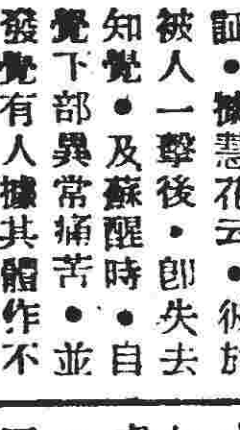 証●據慧花云●彼於
被人一擊後●即失去
知覺●及蘇醒時●自
覺下部異常痛苦●並
發覺有人據其體作不